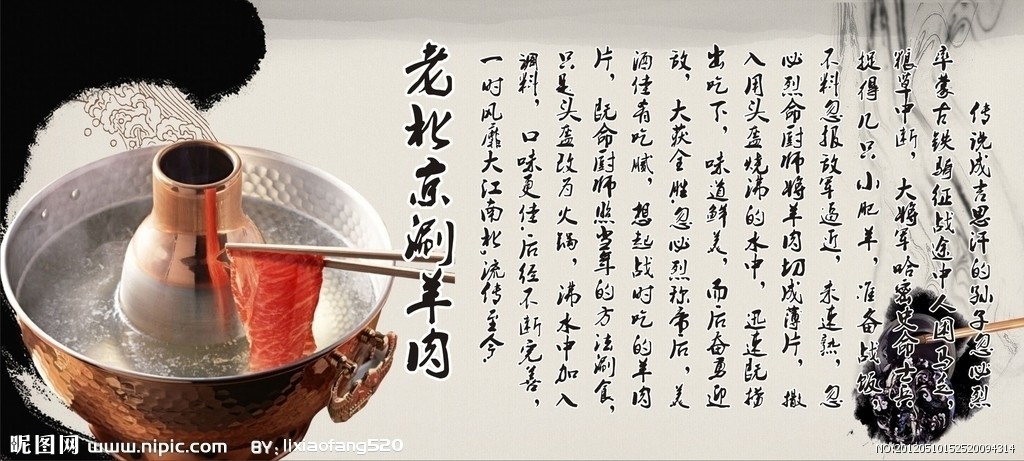 老北京涮羊肉
传说成吉思汗的孙子忽必烈
率蒙古铁骑征战途中人困马乏，
粮草中断，大将军哈密史命士兵
捉得几只小肥羊，准备战饭，
不料忽报敌军逼近，未速熟，忽
必烈命厨师将羊肉切成薄片，撒
入用头盔烧沸的水中，迅速既捞
出吃下，味道鲜美，而后奋勇迎
敌，大获全胜忽必烈称帝后，美
酒佳肴吃腻，想起战时吃的羊肉
片，既命厨师照当年的方法涮食，
只是头盔改为火锅，沸水中加入
调料，口味更佳，后经不断完善，
一时风靡大江南北流传至今
昵图网 www.nipic.com BY: lixiaofang520
NO:20120510152520094314